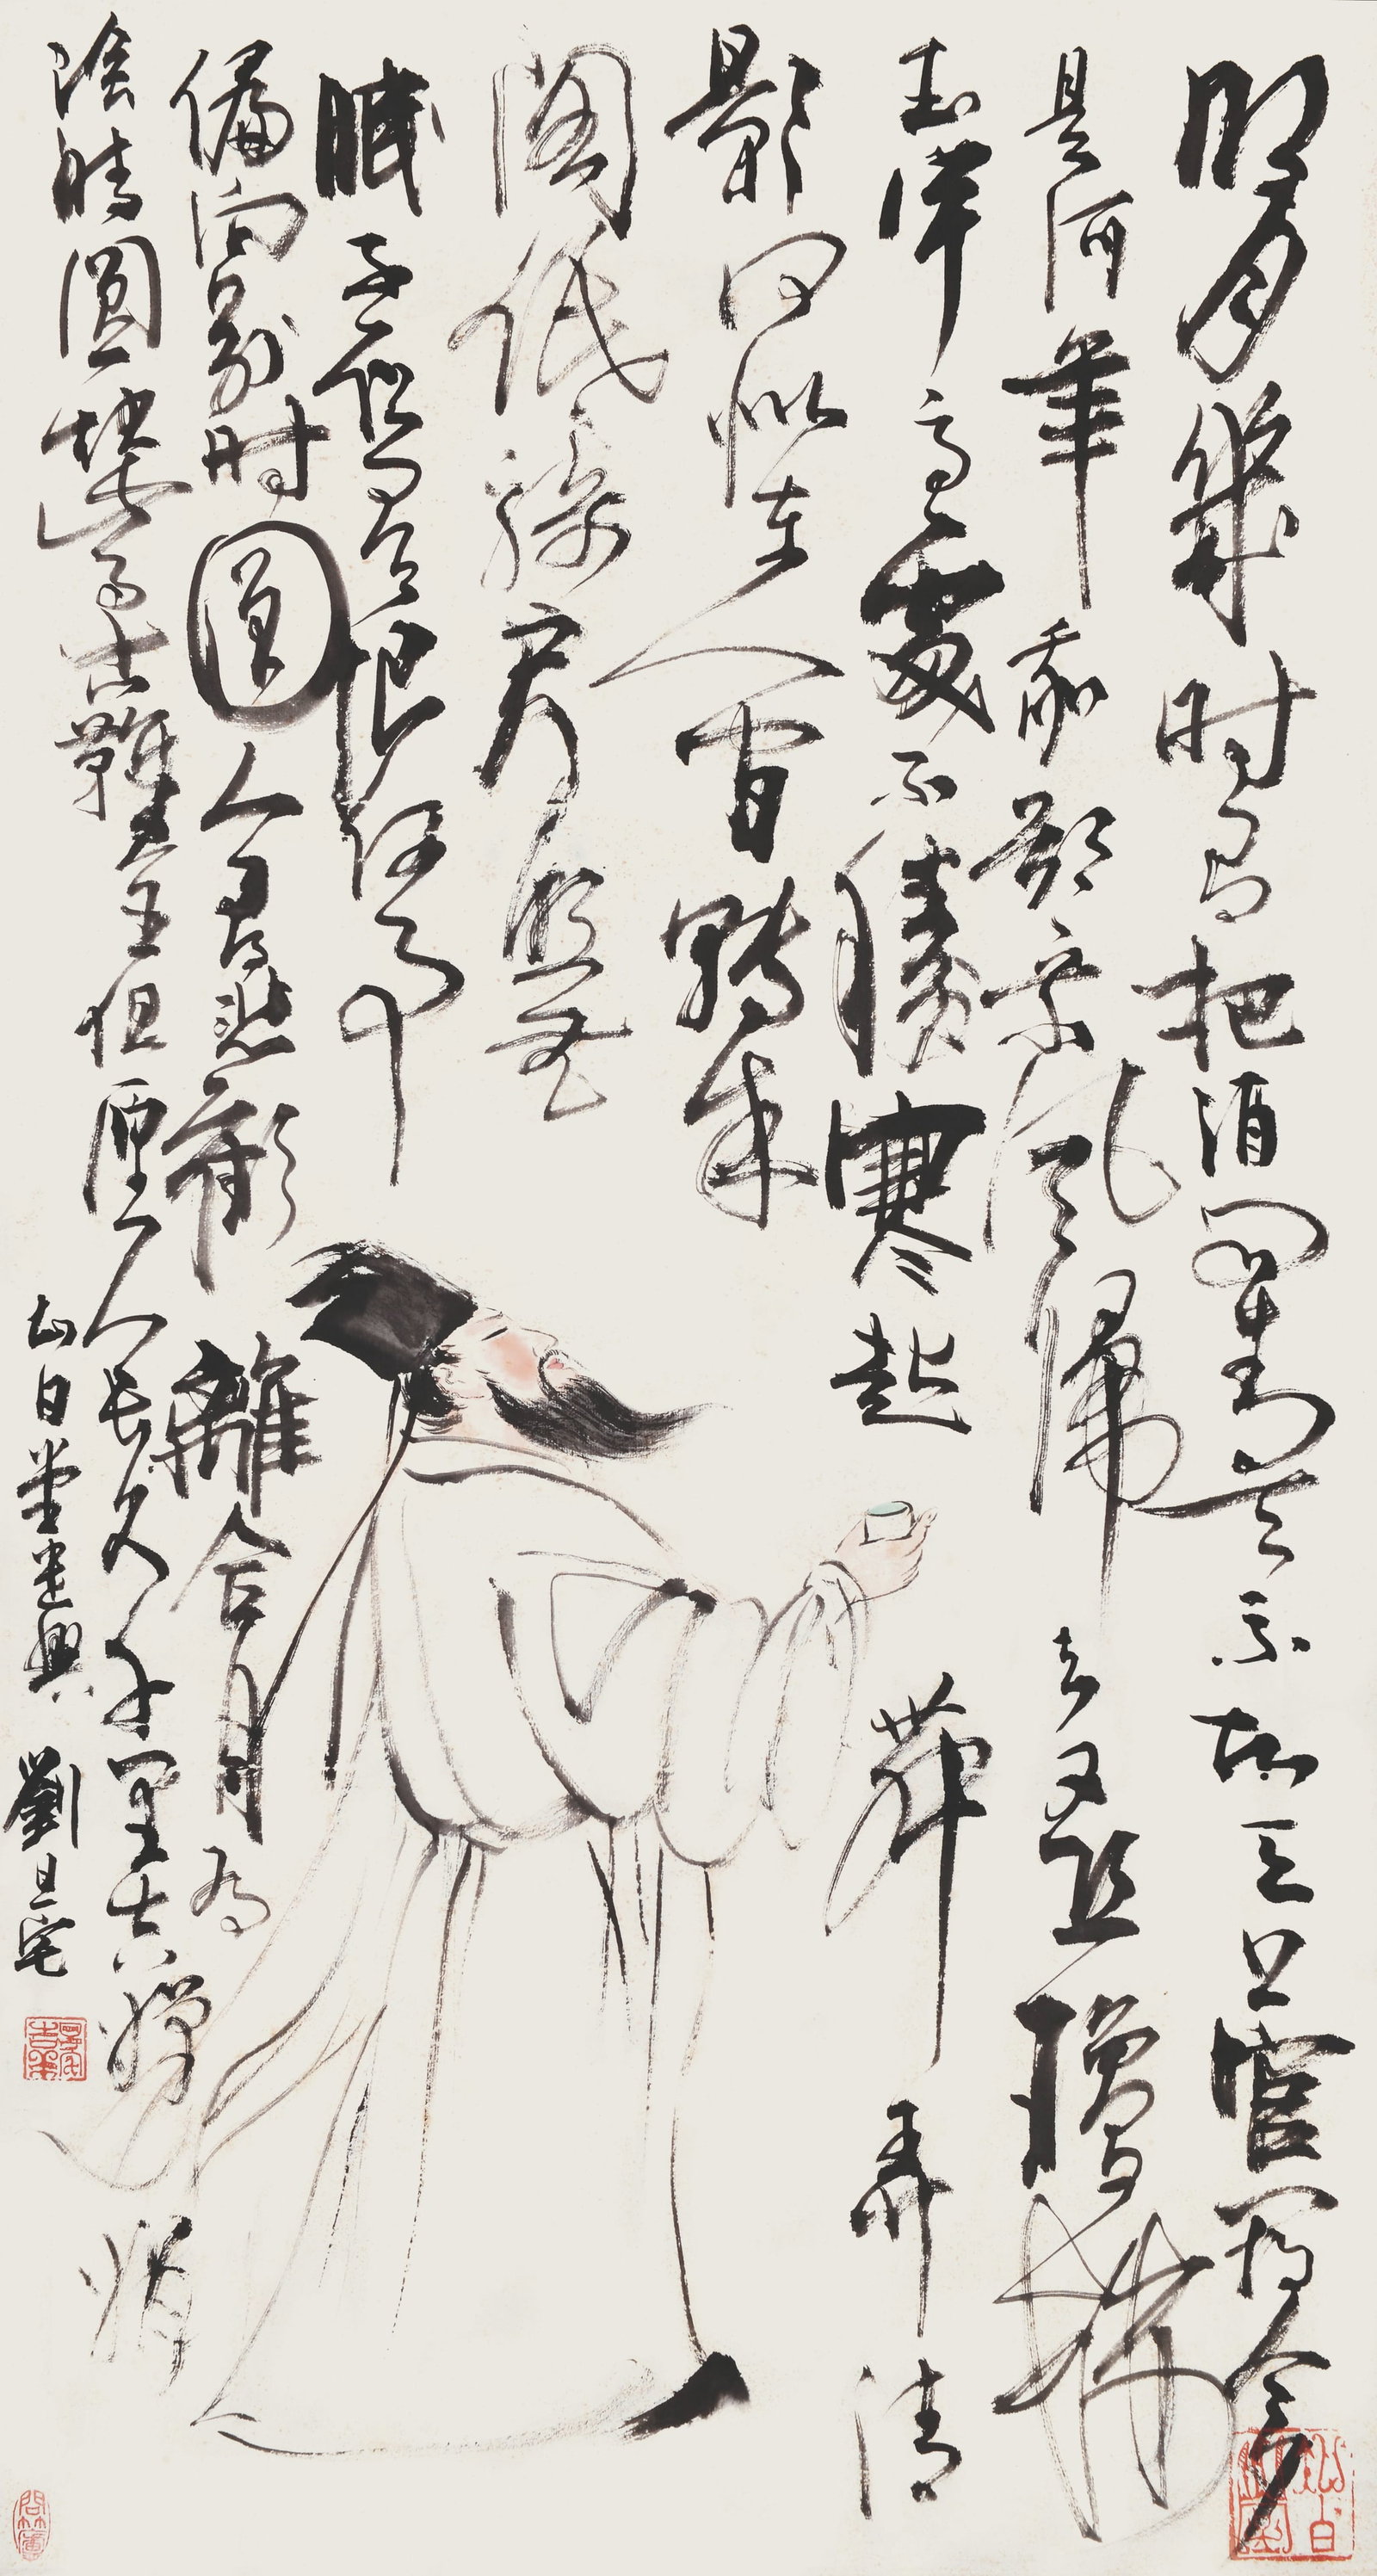 明月幾时有把酒問青天不知天上宫闕今
是何年我欲乘風歸去又恐瓊樓
玉宇高處不勝寒起舞弄清
影何似在人間轉朱
閣低綺户照無
眠不應有恨何事
偏向别时圓人有悲歡離合月有
陰晴圓缺此事古難全但願人長久千里共嬋娟
知白堂遣興 劉旦宅